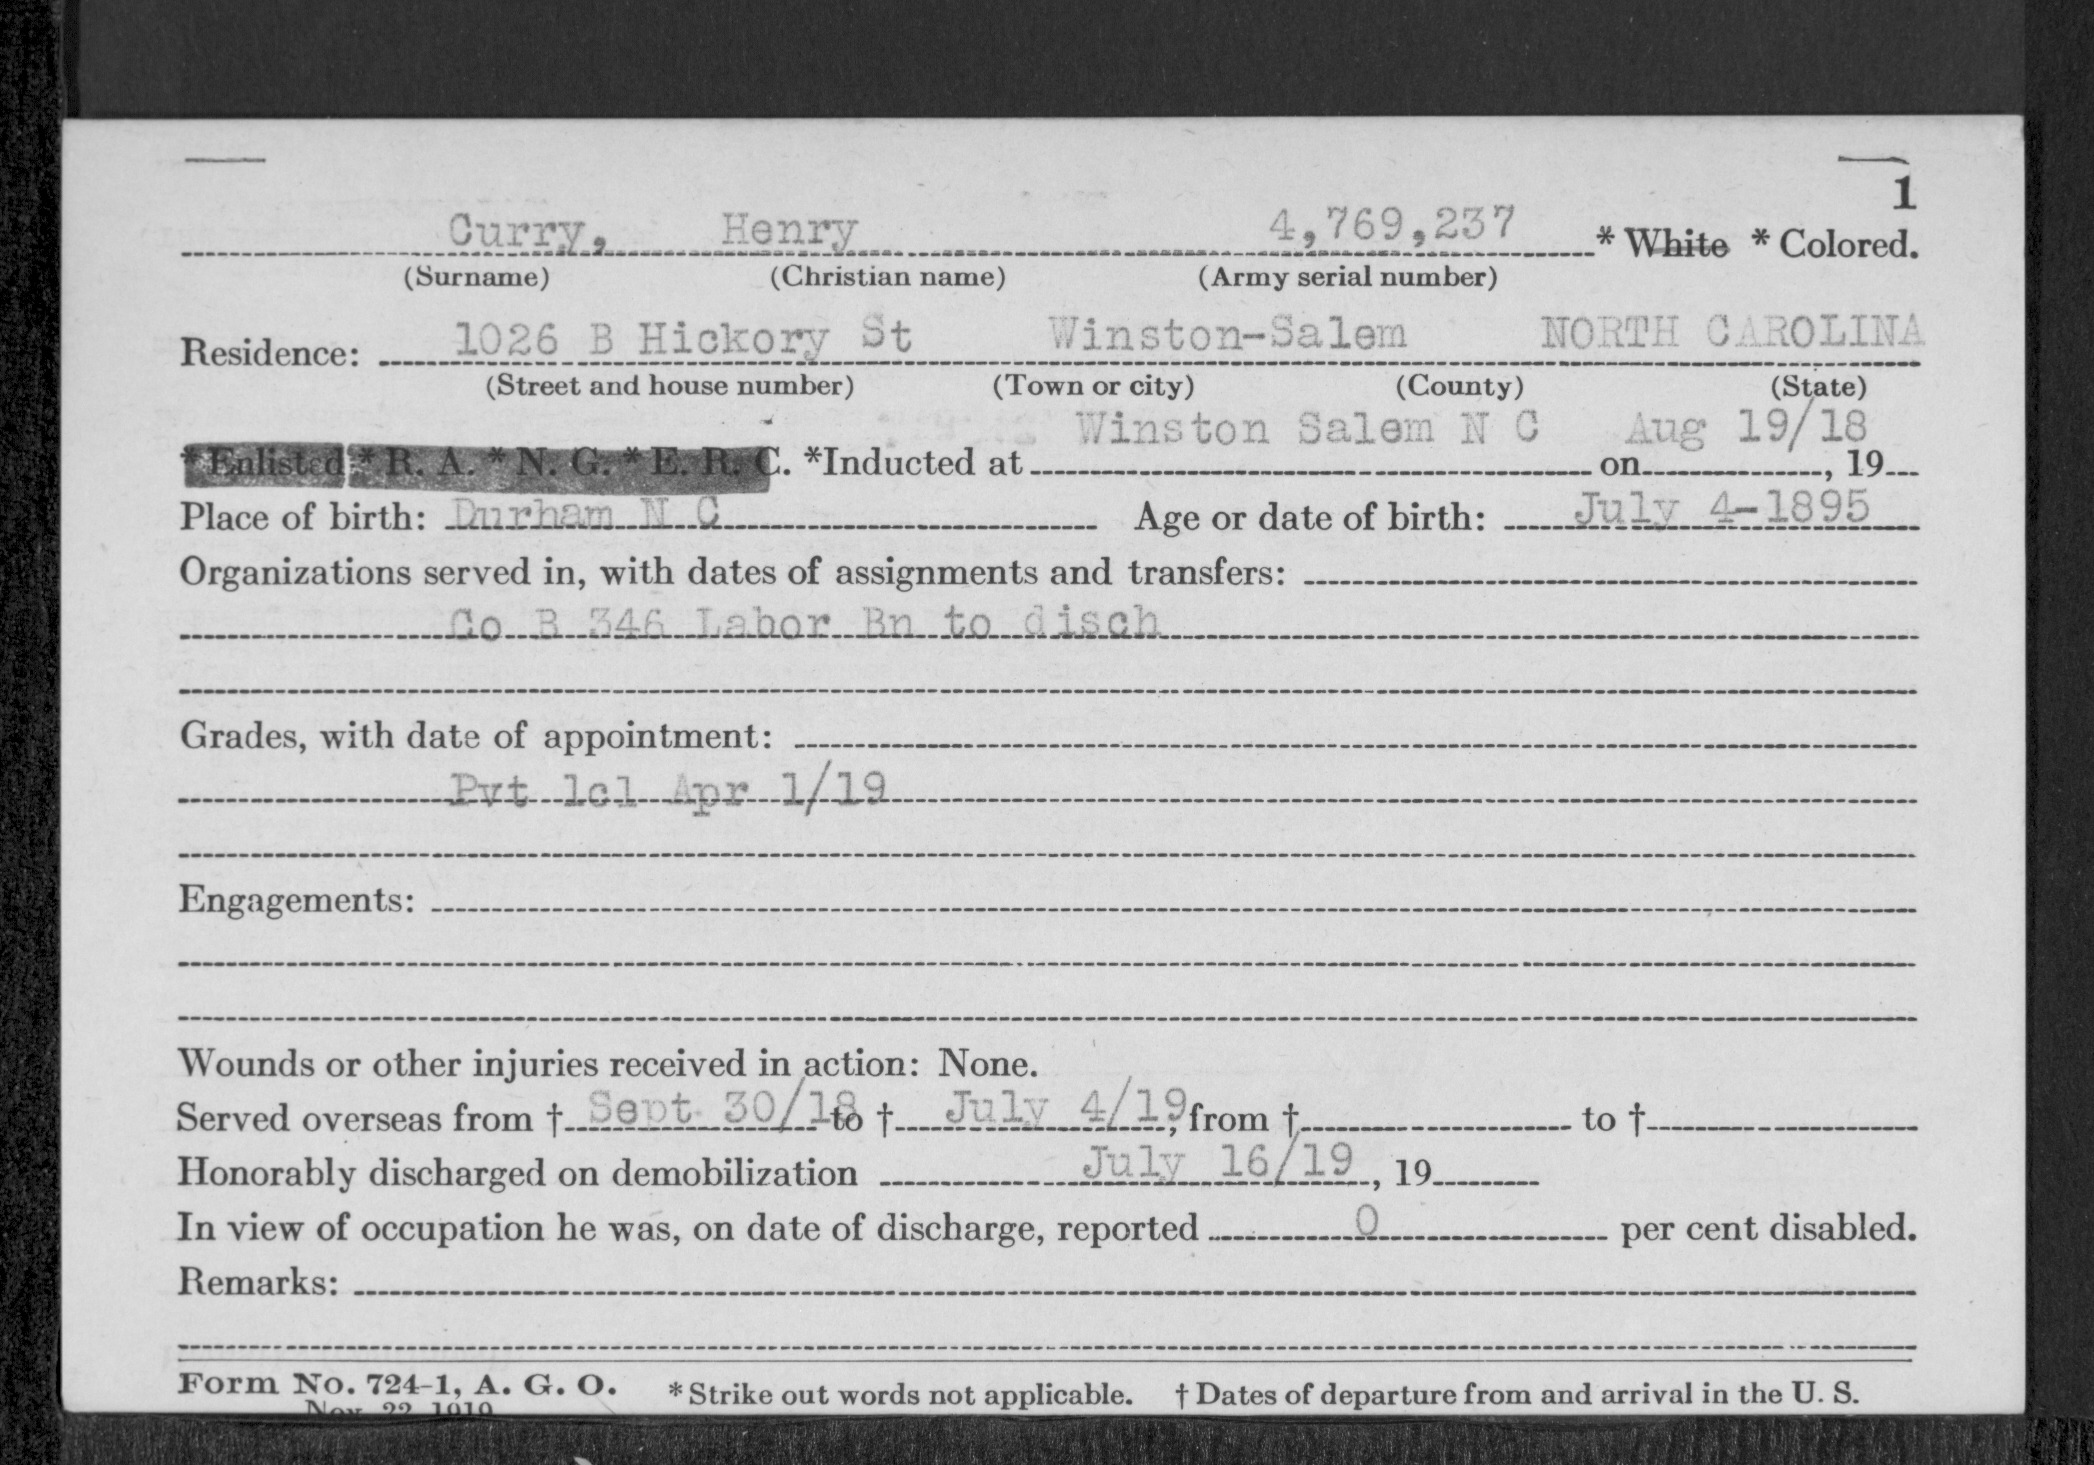 1
Curry, Henry 4,769,237 * White * Colored.
(Surname) (Christian name) (Army serial number)
Residence: 1026 B Hickory St Winston-Salem NORTH CAROLINA
(Street and house number) (Town or city) (County) (State)
Winston Salem N C Aug 19/18
* Enlisted * R. A. * N. G. * E. R. C. *Inducted at on , 19
Place of birth: Durham N C Age or date of birth: July 4-1895
Organizations served in, with dates of assignments and transfers:
Co B 346 Labor Bn to disch
Grades, with date of appointment:
Pvt 1cl Apr 1/19
Engagements:
Wounds or other injuries received in action: None.
Served overseas from † Sept 30/18 to † July 4/19, from † to †
Honorably discharged on demobilization July 16/19, 19
In view of occupation he was, on date of discharge, reported 0 per cent disabled.
Remarks:
Form No. 724-1, A. G. O. * Strike out words not applicable. † Dates of departure from and arrival in the U. S.
Nov. 22, 1919